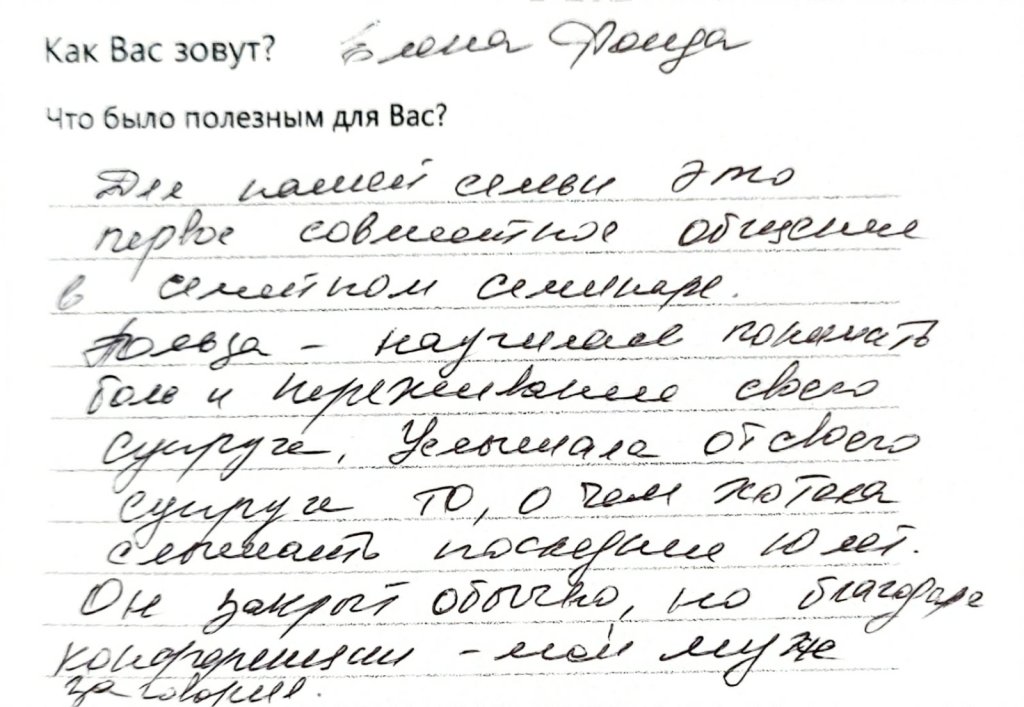 Как Вас зовут? Елена Фонда
Что было полезным для Вас?
Для нашей семьи это
первое совместное общение
в семейном семинаре.
Польза – научилась понимать
боль и переживание своего
супруга. Услышала от своего
супруга то, о чем хотела
слышать последние 10 лет.
Он закрыт обычно, но благодаря
конференции – мой муж
заговорил.